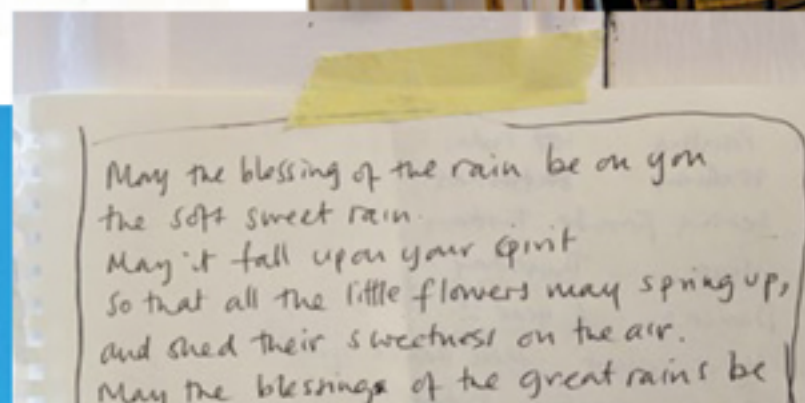 May the blessing of the rain be on you
the soft sweet rain.
May it fall upon your spirit
so that all the little flowers may spring up,
and shed their sweetness on the air.
May the blessings of the great rains be